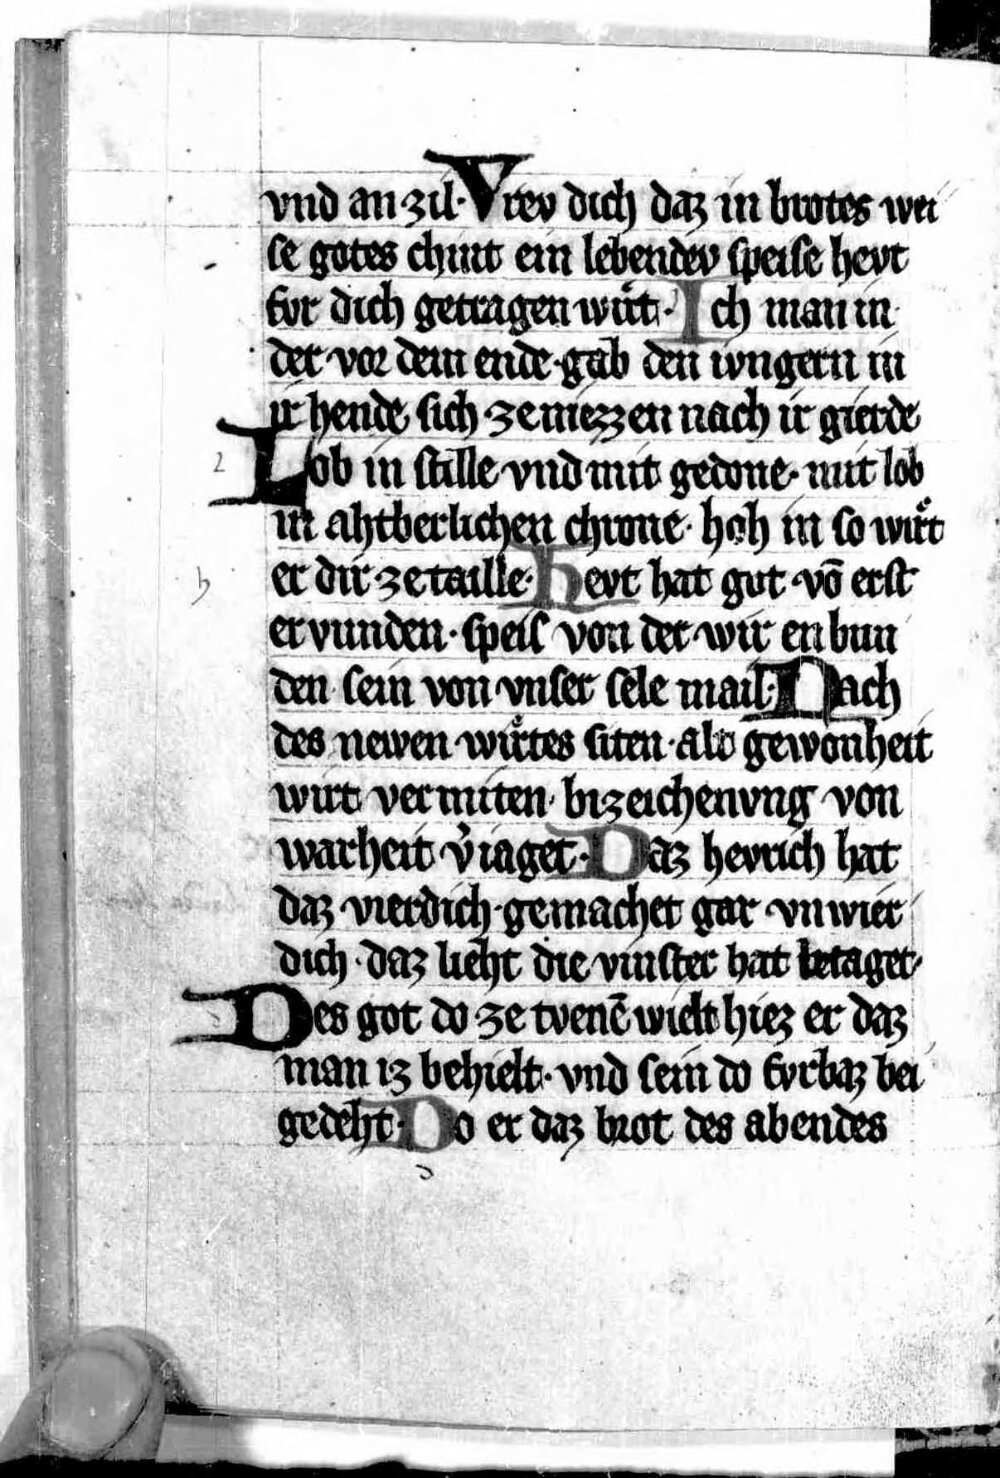 vnd an zil· Vrev dich daz in brotes wei
se gotes chint ein lebendev speise hevt
fvr dich getragen wirt· Ich man in
der vor dem ende gab den ivngern in
ir hende sich ze niezzen nach ir gierde
Lob in stille vnd mit gedone· mit lob
in ahtberlichen chrone· hoh in so wirt
er dir ze taille· Hevt hat got vō erst
ervunden· speis von der wir enbun
den sein von vnser sele mail· Nach
des newen wirtes siten· alv gewonheit
wirt vermiten· bizeichenvng von
warheit v̓iaget· Daz hevrich hat
daz vierdich gemachet gar vnwier
dich· daz lieht die vinster hat betaget·
Des got do ze tvenē wielt hiez er daz
man iz behielt· vnd sein do fvrbaz bei
gedeht· Do er daz brot des abendes